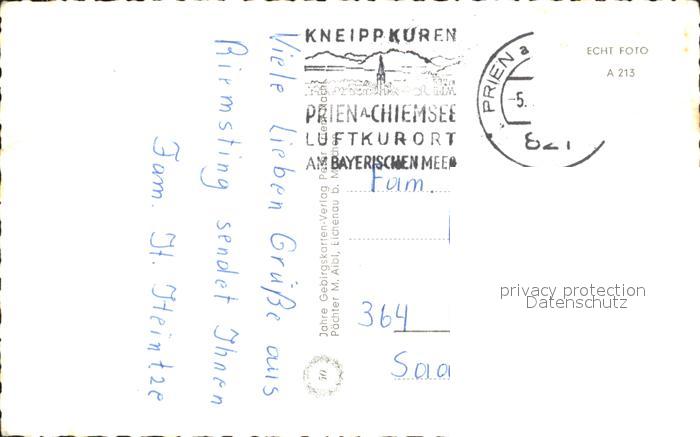 KNEIPPKUREN
PRIEN A. CHIEMSEE
LUFTKURORT
AM BAYERISCHEN MEER
PRIEN a
-5.
821
ECHT FOTO
A 213
Viele lieben Grüße aus
Rimsting sendet Ihnen
Fam. H. Heintze
Jahre Gebirgskarten-Verlag
Pächter M. Aibl, Eichenau b.
50
Fam.
364
Saa
privacy protection
Datenschutz